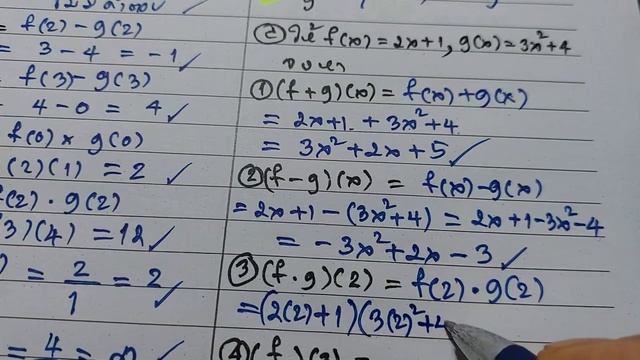 = f(2) - g(2)
= 3 - 4 = -1 ✓
f(3) - g(3)
4 - 0 = 4 ✓
f(0) × g(0)
(2)(1) = 2 ✓
f(2) · g(2)
3)(4) = 12 ✓
= 2/1 = 2 ✓
= 4
② f(x) = 2x+1, g(x) = 3x²+4
①(f+g)(x) = f(x)+g(x)
= 2x+1 + 3x²+4
= 3x²+2x+5 ✓
②(f-g)(x) = f(x)-g(x)
= 2x+1-(3x²+4) = 2x+1-3x²-4
= -3x²+2x-3 ✓
③(f·g)(2) = f(2)·g(2)
= (2(2)+1)(3(2)²+4